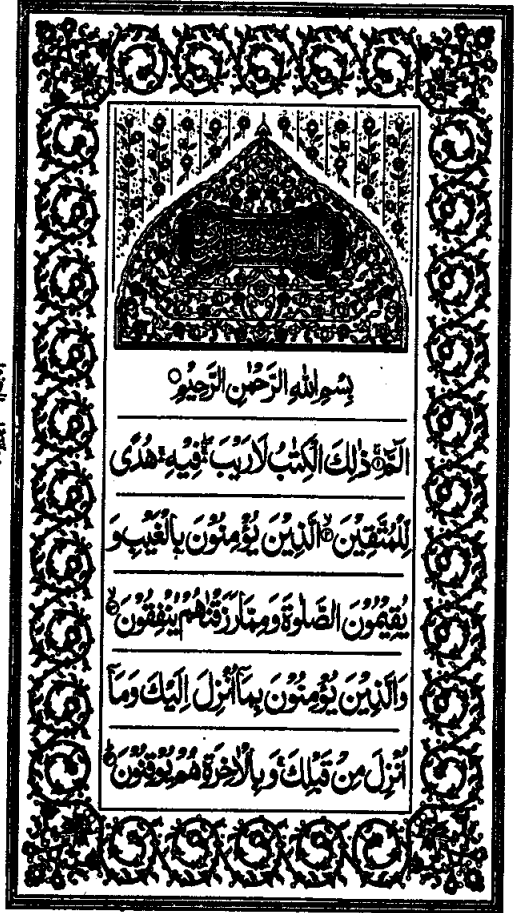 بِسْمِ اللّٰهِ الرَّحْمٰنِ الرَّحِيْمِ ○
الٓمّٓ ۚ‏﴿۱﴾ ذٰلِكَ الْكِتٰبُ لَا رَيْبَ ۛۖ فِيْهِ ۛۚ هُدًى
لِّلْمُتَّقِيْنَ ۙ﴿۲﴾ الَّذِيْنَ يُؤْمِنُوْنَ بِالْغَيْبِ وَ
يُقِيْمُوْنَ الصَّلٰوةَ وَ مِمَّا رَزَقْنٰهُمْ يُنْفِقُوْنَ ۙ﴿۳﴾
وَالَّذِيْنَ يُؤْمِنُوْنَ بِمَاۤ اُنْزِلَ اِلَيْكَ وَمَاۤ
اُنْزِلَ مِنْ قَبْلِكَ ۚ وَ بِالْاٰخِرَةِ هُمْ يُوْقِنُوْنَ ؕ﴿۴﴾